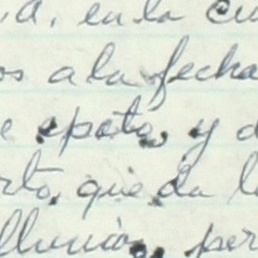 a, en la cu
os a la fecha
e epata, y d
rto, que da l
lluvia, per